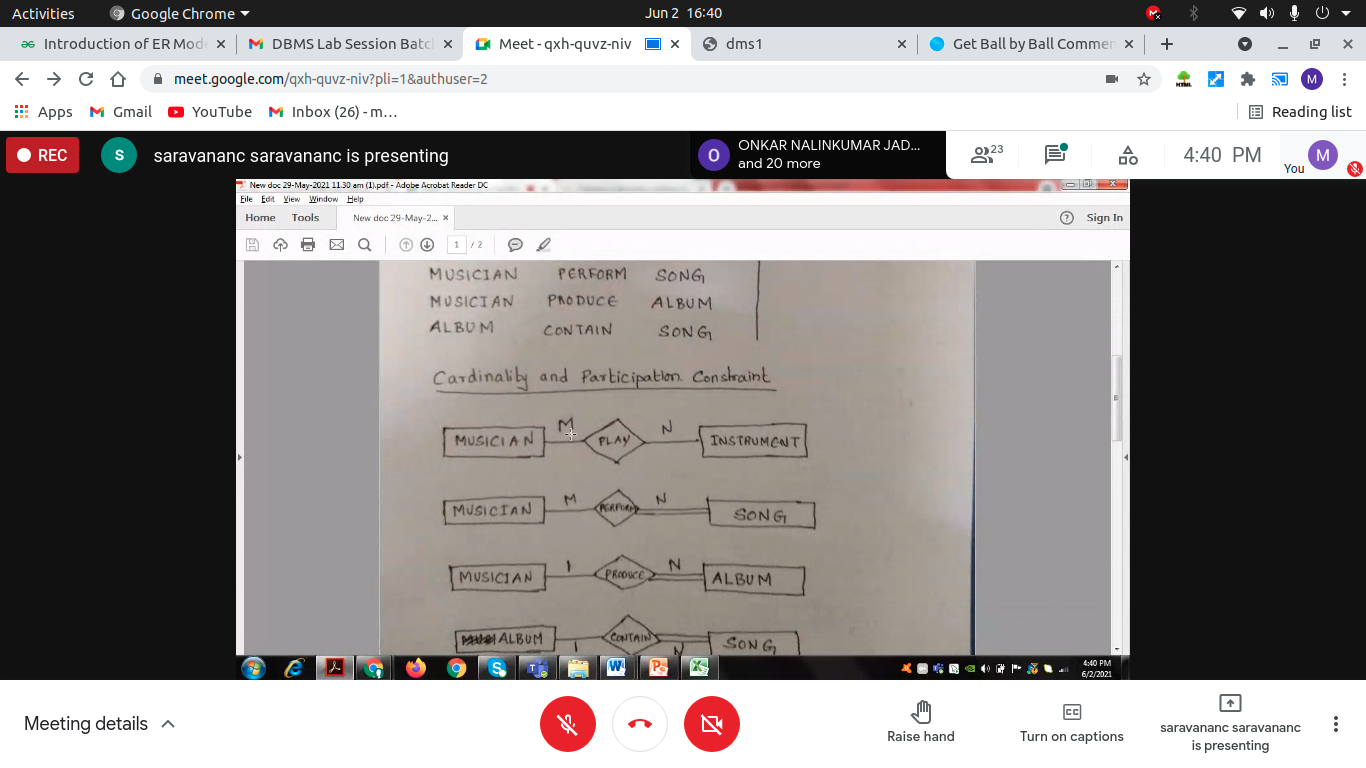 Activities Google Chrome Jun 2 16:40
Introduction of ER Mode DBMS Lab Session Batc Meet - qxh-quvz-niv dms1 Get Ball by Ball Commen
meet.google.com/qxh-quvz-niv?pli=1&authuser=2 M
Apps Gmail YouTube Inbox (26) - m… Reading list
REC S saravananc saravananc is presenting O ONKAR NALINKUMAR JAD...
and 20 more
23 4:40 PM You M
New doc 29-May-2021 11.30 am (1).pdf - Adobe Acrobat Reader DC
File Edit View Window Help
Home Tools New doc 29-May-2... Sign In
1 / 2
MUSICIAN PERFORM SONG
MUSICIAN PRODUCE ALBUM
ALBUM CONTAIN SONG
Cardinality and Participation Constraint
M N
MUSICIAN PLAY INSTRUMENT
M N
MUSICIAN PERFORM SONG
1 N
MUSICIAN PRODUCE ALBUM
ALBUM CONTAIN SONG
1 N
4:40 PM
6/2/2021
Meeting details
Raise hand Turn on captions saravananc saravananc
is presenting